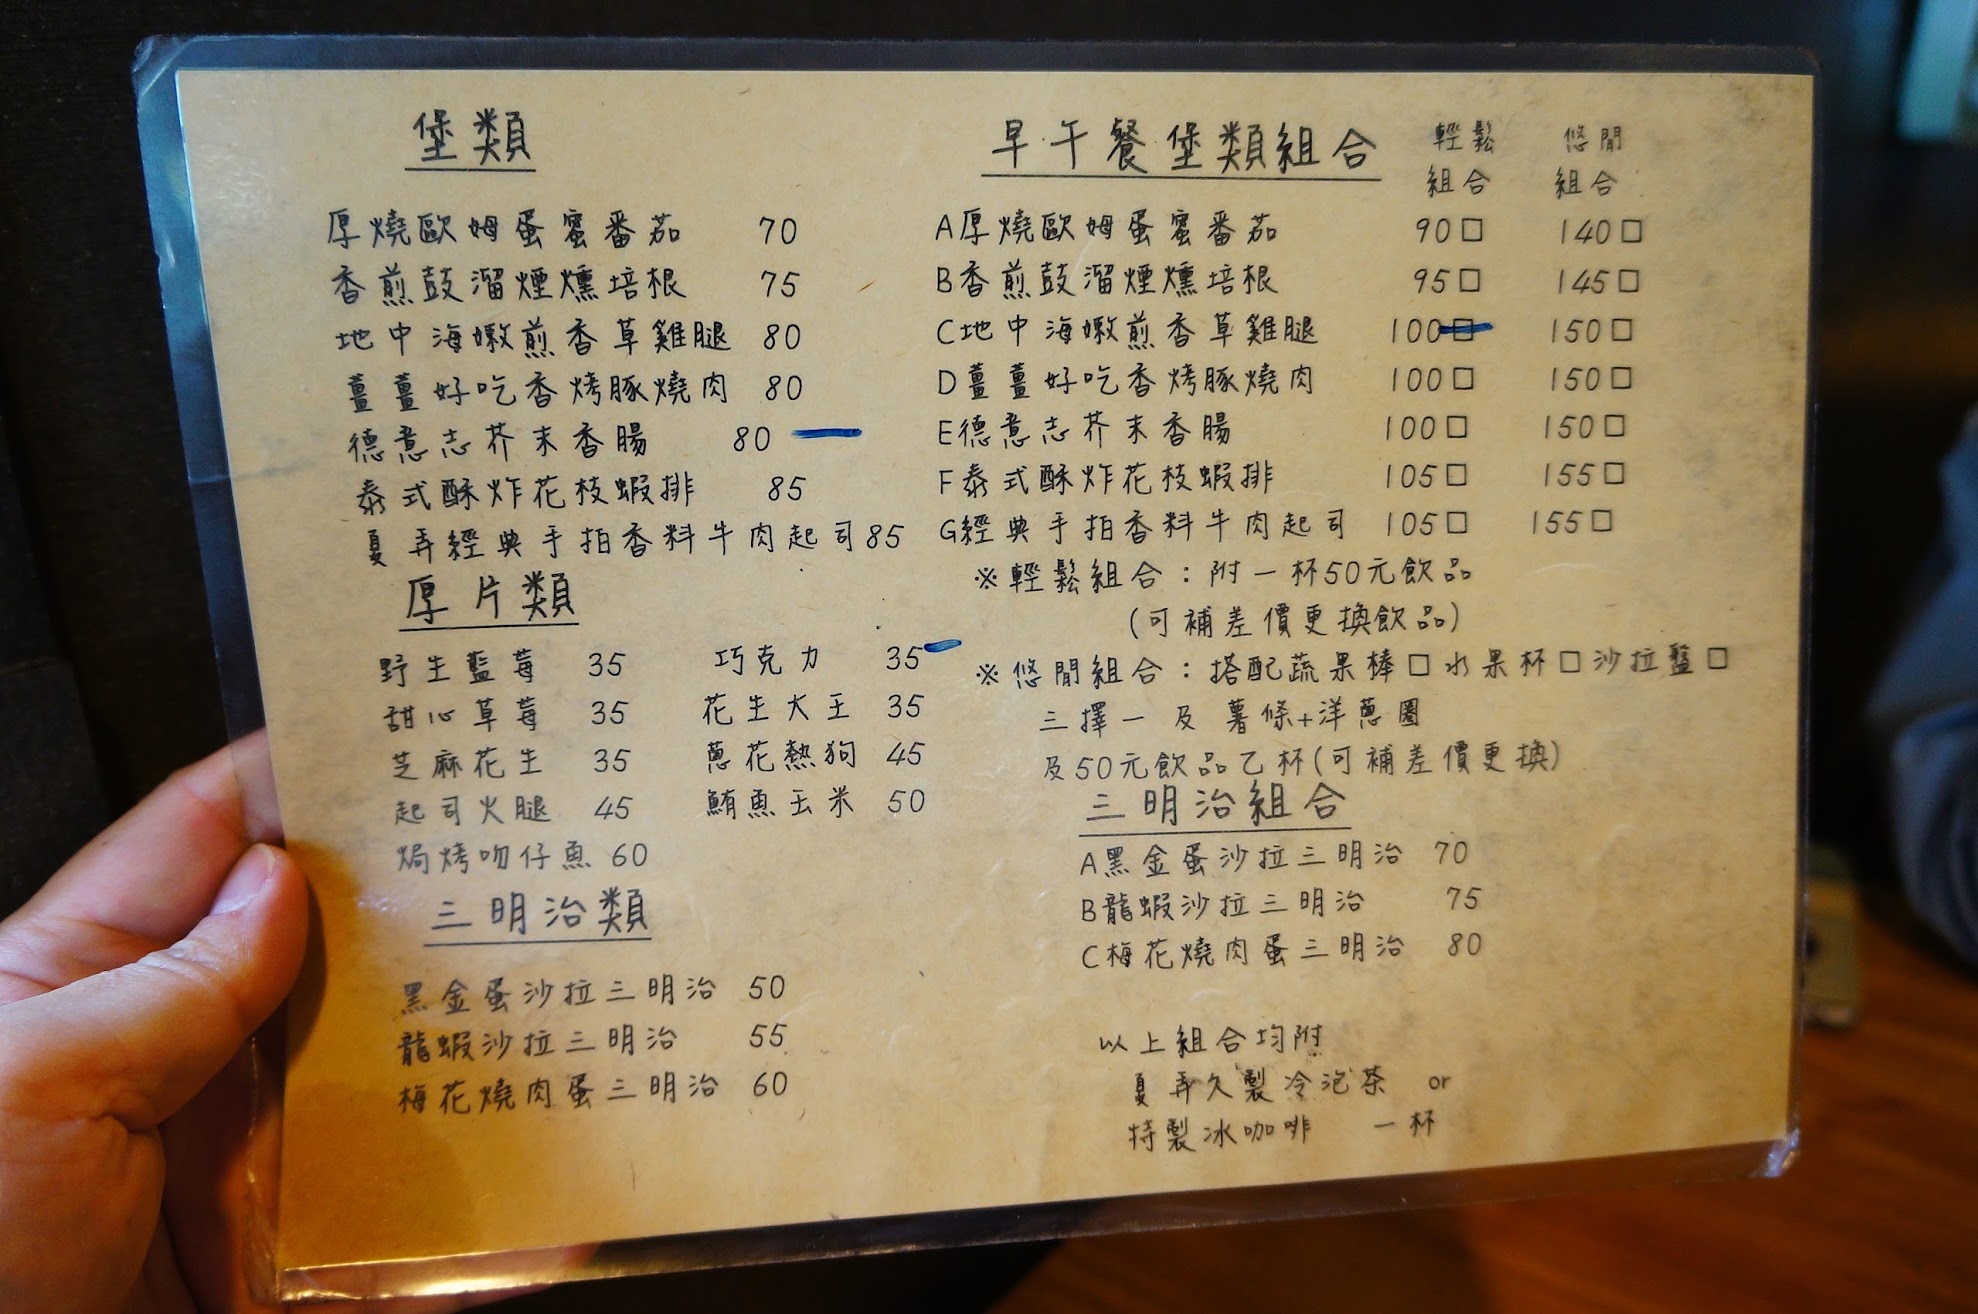 堡類
厚燒歐姆蛋蜜番茄 70
香煎鼓溜煙燻培根 75
地中海嫩煎香草雞腿 80
薑薑好吃香烤豚燒肉 80
德意志芥末香腸 80
泰式酥炸花枝蝦排 85
夏弄經典手拍香料牛肉起司 85
厚片類
野生藍莓 35 巧克力 35
甜心草莓 35 花生大王 35
芝麻花生 35 蔥花熱狗 45
起司火腿 45 鮪魚玉米 50
焗烤吻仔魚 60
三明治類
黑金蛋沙拉三明治 50
龍蝦沙拉三明治 55
梅花燒肉蛋三明治 60
早午餐堡類組合 輕鬆組合 悠閒組合
A厚燒歐姆蛋蜜番茄 90□ 140□
B香煎鼓溜煙燻培根 95□ 145□
C地中海嫩煎香草雞腿 100□ 150□
D薑薑好吃香烤豚燒肉 100□ 150□
E德意志芥末香腸 100□ 150□
F泰式酥炸花枝蝦排 105□ 155□
G經典手拍香料牛肉起司 105□ 155□
※輕鬆組合:附一杯50元飲品
(可補差價更換飲品)
※悠閒組合:搭配蔬果棒□水果杯□沙拉盤□
三擇一及薯條+洋蔥圈
及50元飲品乙杯(可補差價更換)
三明治組合
A黑金蛋沙拉三明治 70
B龍蝦沙拉三明治 75
C梅花燒肉蛋三明治 80
以上組合均附
夏弄久製冷泡茶 or
特製冰咖啡 一杯